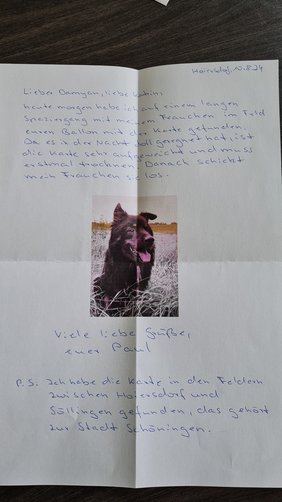 Hoiersdorf, 10.8.24
Lieber Damyan, liebe Kathi,
heute morgen habe ich auf einem langen
Spaziergang mit meinem Frauchen im Feld
euren Ballon mit der Karte gefunden.
Da es in der Nacht doll geregnet hat, ist
die Karte sehr aufgeweicht und muss
erstmal trocknen. Danach schickt
mein Frauchen sie los.
Viele liebe Grüße,
euer Paul
P.S: Ich habe die Karte in den Feldern
zwischen Hoiersdorf und
Söllingen gefunden, das gehört
zur Stadt Schöningen.